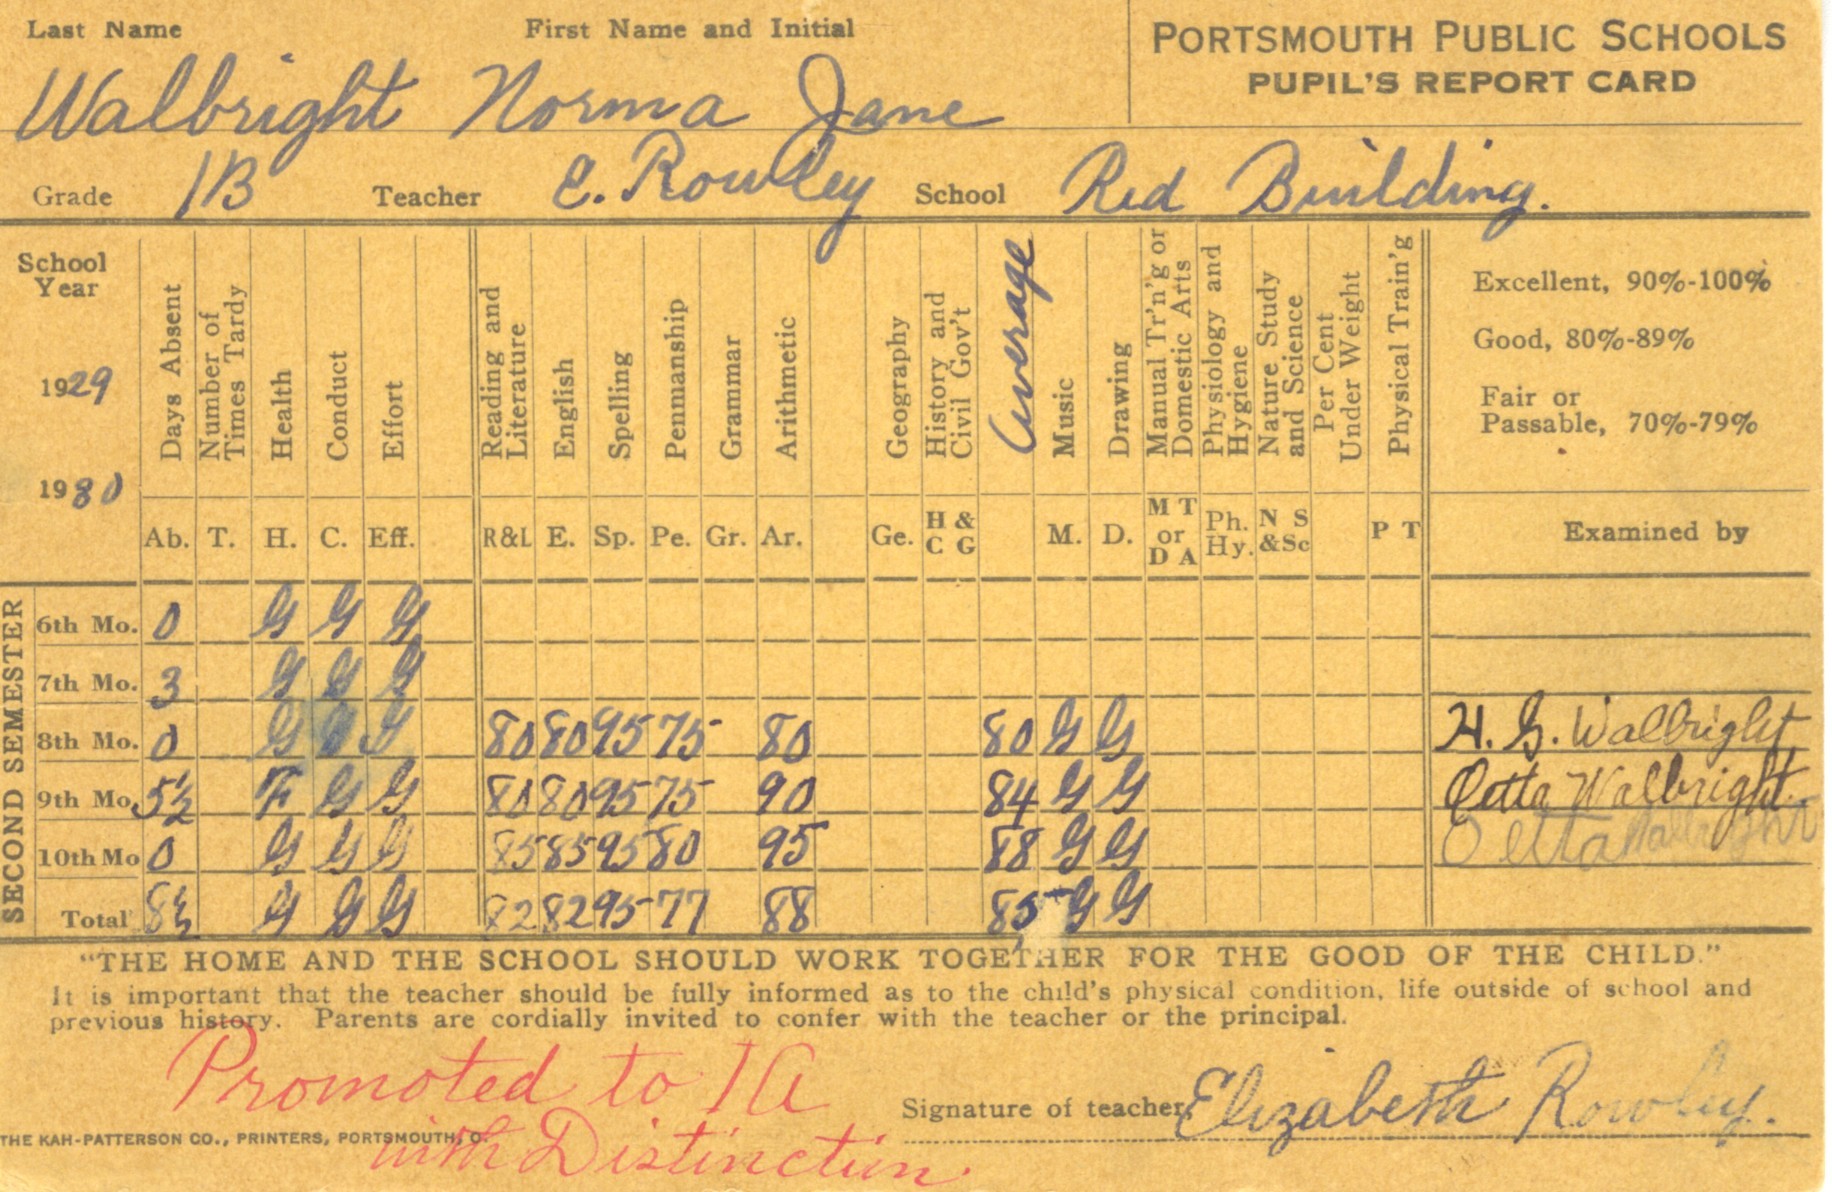 Last Name First Name and Initial
PORTSMOUTH PUBLIC SCHOOLS
PUPIL'S REPORT CARD
Walbright Norma Jane
Grade 1B Teacher E. Rowley School Red Building.
School Year
1929
1930
Days Absent
Number of Times Tardy
Health
Conduct
Effort
Reading and Literature
English
Spelling
Penmanship
Grammar
Arithmetic
Geography
History and Civil Gov't
Average
Music
Drawing
Manual Tr'n'g or Domestic Arts
Physiology and Hygiene
Nature Study and Science
Per Cent Under Weight
Physical Train'g
Excellent, 90%-100%
Good, 80%-89%
Fair or
Passable, 70%-79%
Ab. T. H. C. Eff. R&L E. Sp. Pe. Gr. Ar. Ge. H & C G M. D. M T or D A Ph. Hy. N S &Sc P T Examined by
SECOND SEMESTER
6th Mo. 0 G G G
7th Mo. 3 G G G
8th Mo. 0 G G G 80 80 95 75 80 80 G G H. G. Walbright
9th Mo. 5½ F G G 80 80 95 75 90 84 G G Oetta Walbright
10th Mo 0 G G G 85 85 95 80 95 88 G G Oetta Walbright
Total 8½ G G G 82 82 95 77 88 85 G G
"THE HOME AND THE SCHOOL SHOULD WORK TOGETHER FOR THE GOOD OF THE CHILD."
It is important that the teacher should be fully informed as to the child's physical condition, life outside of school and
previous history. Parents are cordially invited to confer with the teacher or the principal.
Promoted to 1A
with Distinction.
Signature of teacher Elizabeth Rowley.
THE KAH-PATTERSON CO., PRINTERS, PORTSMOUTH, O.